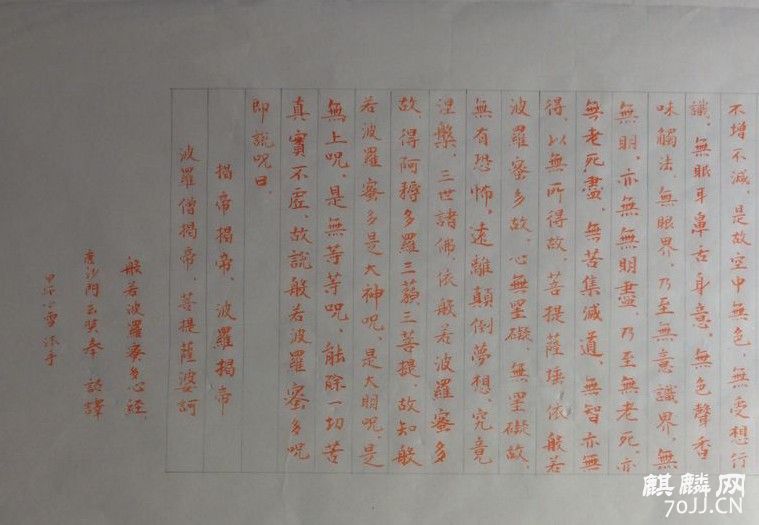 不增不減，是故空中無色，無受想行
識，無眼耳鼻舌身意，無色聲香
味觸法，無眼界，乃至無意識界，無
無明，亦無無明盡，乃至無老死，亦
無老死盡，無苦集滅道，無智亦無
得，以無所得故，菩提薩埵，依般若
波羅蜜多故，心無罣礙，無罣礙故，
無有恐怖，遠離顛倒夢想，究竟
涅槃，三世諸佛，依般若波羅蜜多
故，得阿耨多羅三藐三菩提，故知般
若波羅蜜多是大神咒，是大明咒，是
無上咒，是無等等咒，能除一切苦
真實不虛，故説般若波羅蜜多咒
即説咒曰，
揭帝揭帝，波羅揭帝
波羅僧揭帝，菩提薩婆訶
般若波羅蜜多心經，
唐沙門玄奘奉 詔譯
小雪
麒麟网
70JJ.CN